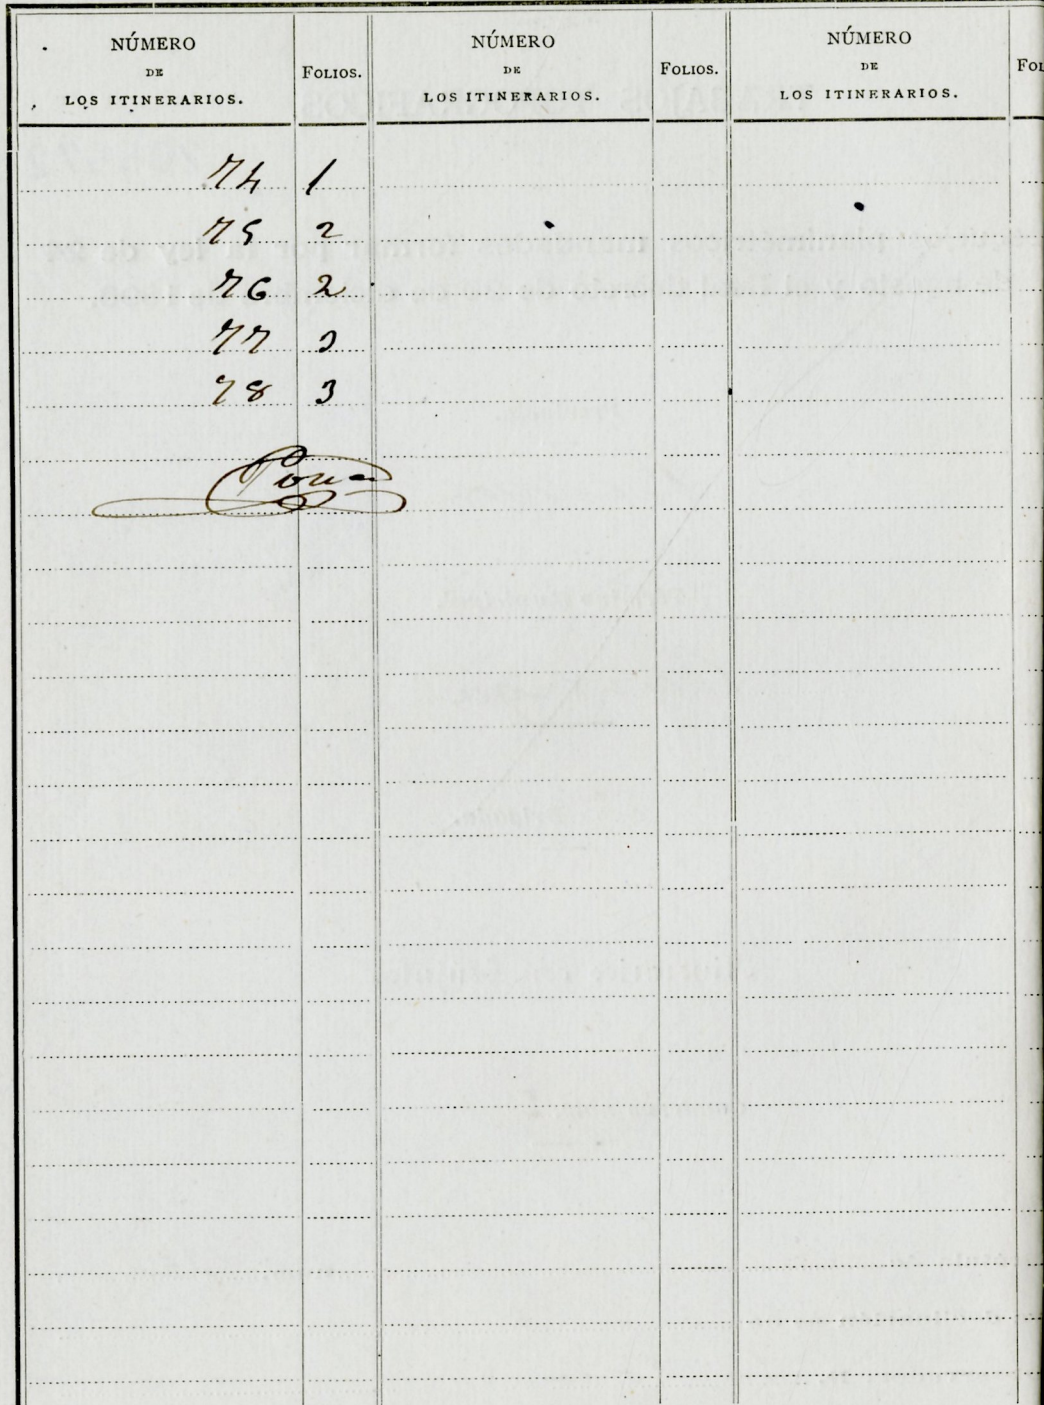 NÚMERO
DE
LOS ITINERARIOS.
FOLIOS.
NÚMERO
DE
LOS ITINERARIOS.
FOLIOS.
NÚMERO
DE
LOS ITINERARIOS.
74 1
75 2
76 2
77 3
78 3